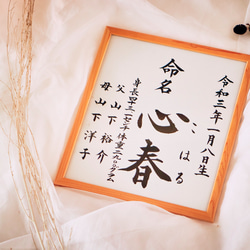 令和三年一月八日生
命名
心春
こはる
身長四十三・一七センチ体重二九〇〇グラム
父 山下裕介
母 山下洋子